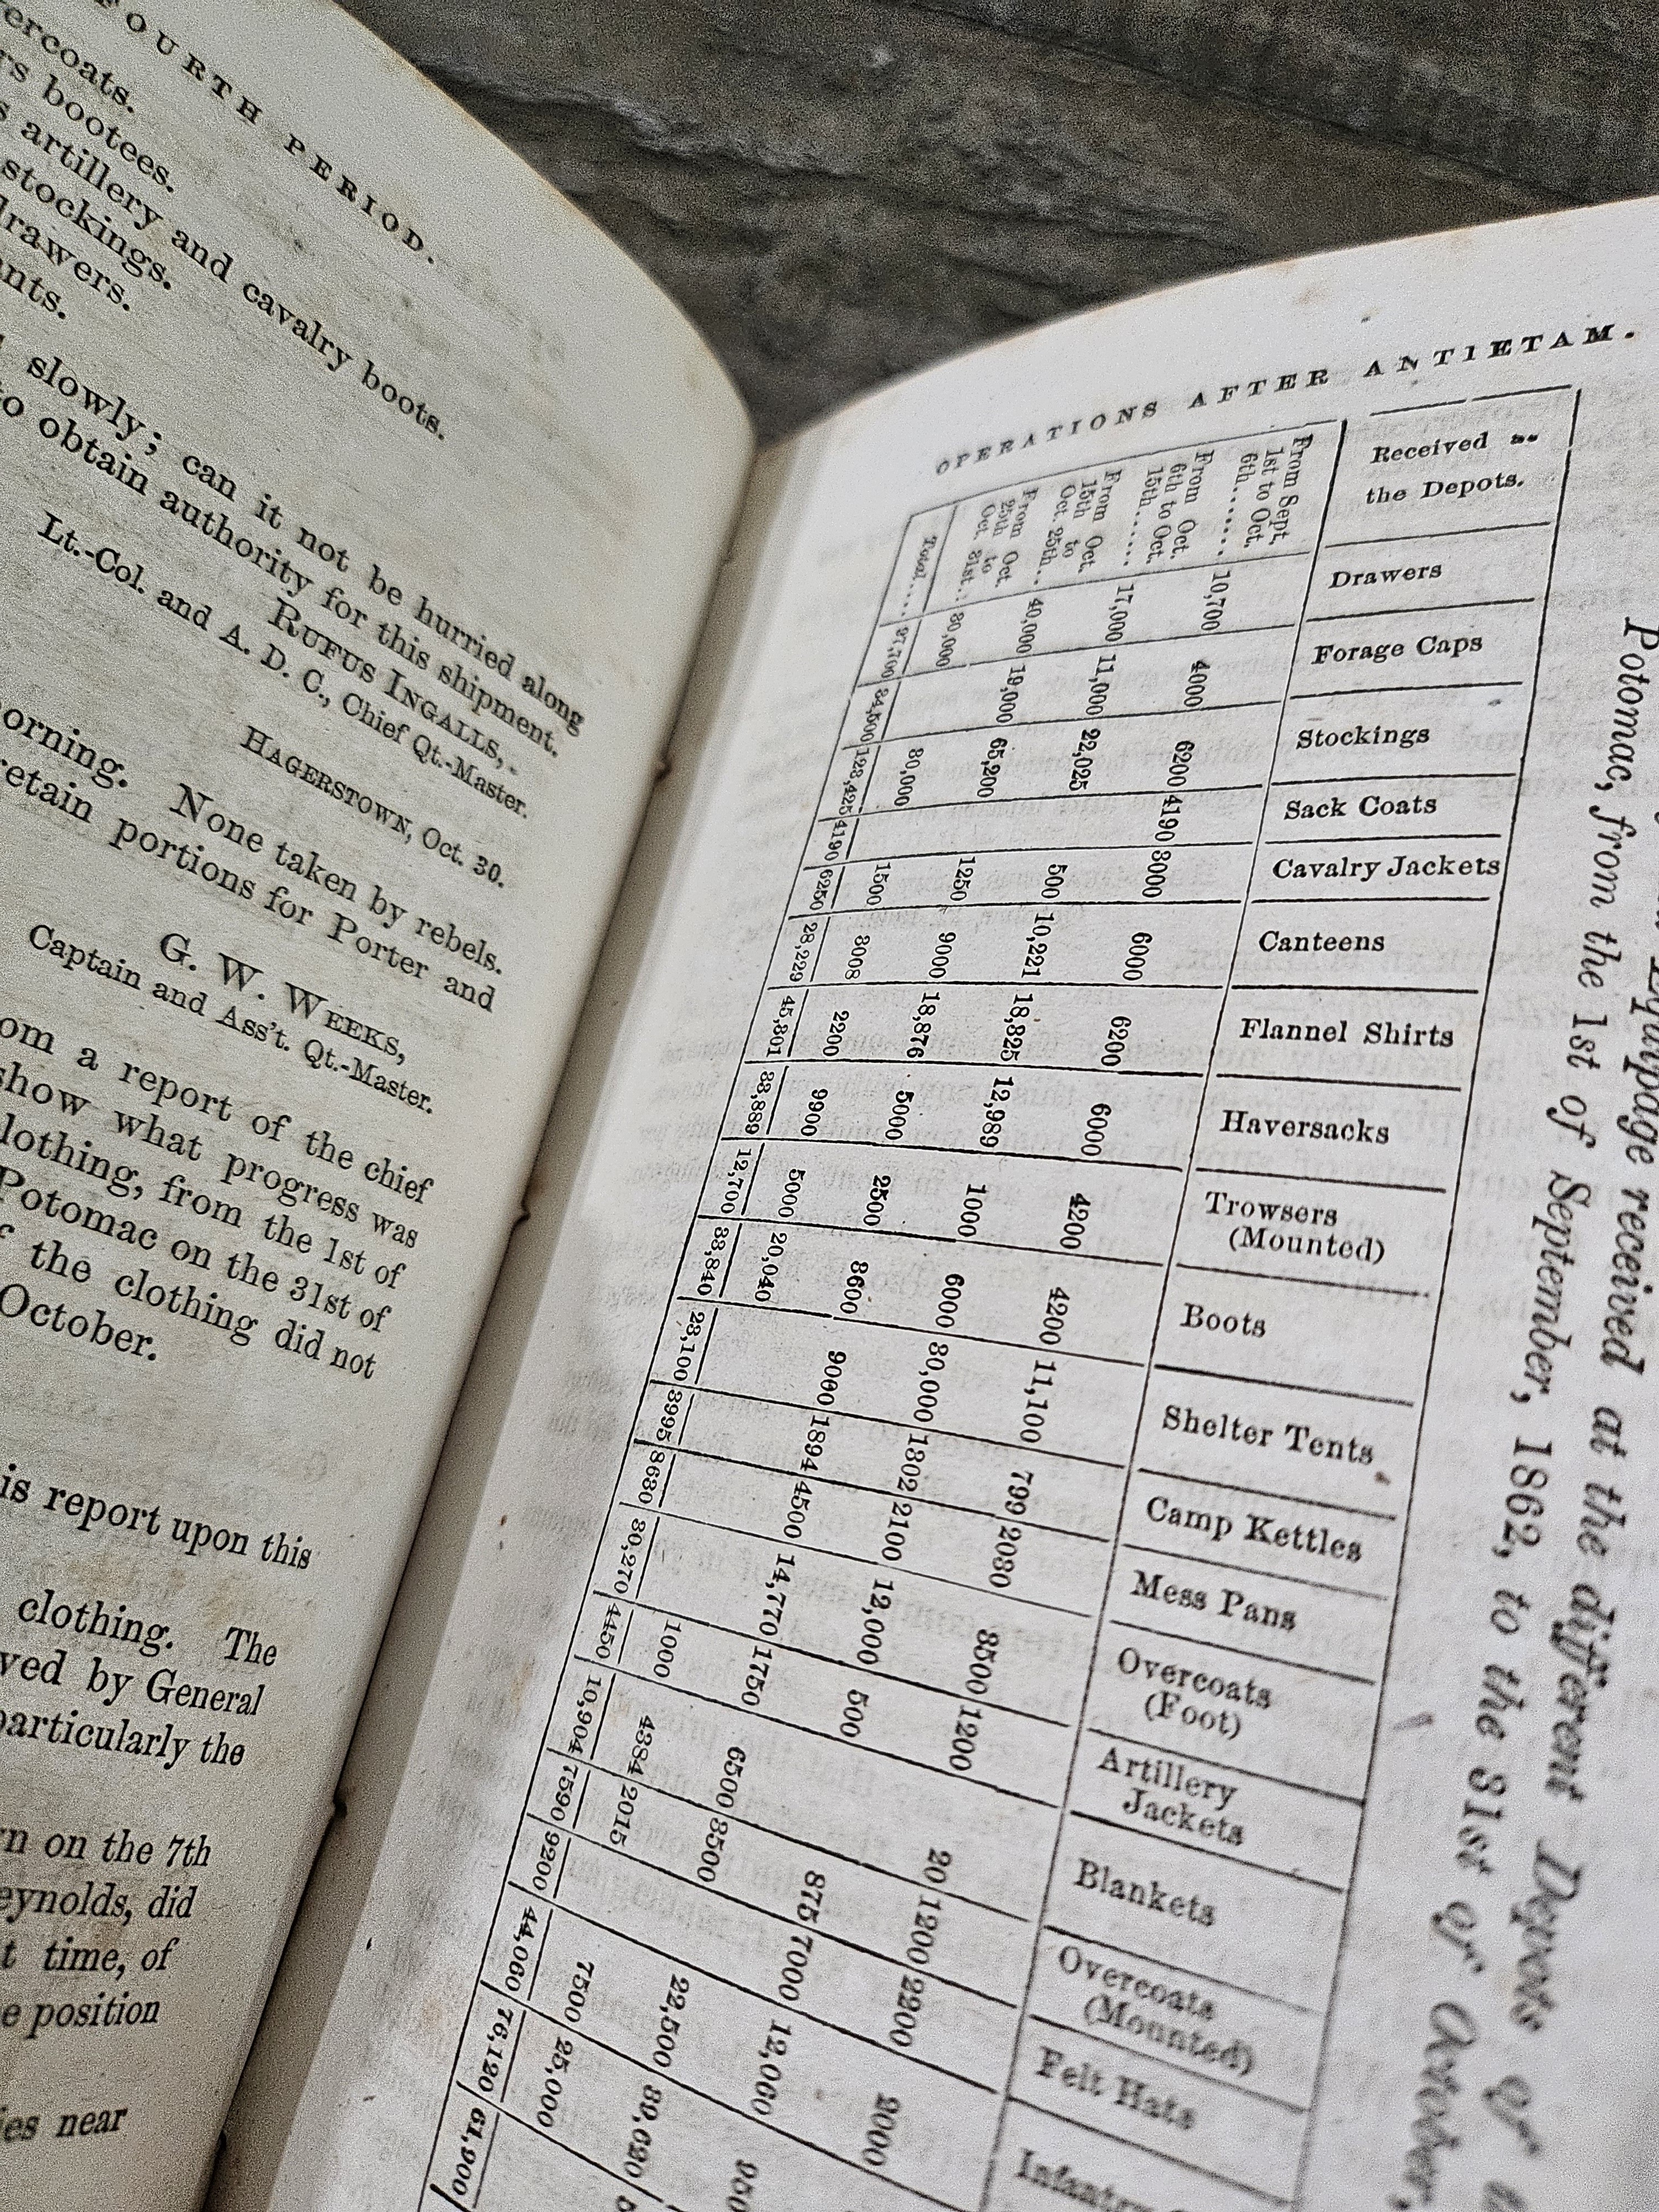 FOURTH PERIOD.
ercoats.
rs bootees.
s artillery and cavalry boots.
stockings.
drawers.
ants.
slowly; can it not be hurried along
to obtain authority for this shipment.
RUFUS INGALLS,
Lt.-Col. and A. D. C., Chief Qt.-Master.
HAGERSTOWN, Oct. 30.
orning. None taken by rebels.
retain portions for Porter and
G. W. WEEKS,
Captain and Ass't. Qt.-Master.
om a report of the chief
show what progress was
lothing, from the 1st of
Potomac on the 31st of
f the clothing did not
October.
is report upon this
clothing. The
ved by General
particularly the
rn on the 7th
eynolds, did
t time, of
e position
ies near
OPERATIONS AFTER ANTIETAM.
Equipage received at the different Depots of
Potomac, from the 1st of September, 1862, to the 31st of October,
Received
the Depots.
Drawers
Forage Caps
Stockings
Sack Coats
Cavalry Jackets
Canteens
Flannel Shirts
Haversacks
Trowsers
(Mounted)
Boots
Shelter Tents
Camp Kettles
Mess Pans
Overcoats
(Foot)
Artillery
Jackets
Blankets
Overcoats
(Mounted)
Felt Hats
Infantry
From Sept.
1st to Oct.
6th...... 10,700 4000 6200 4190 3000 6000 6200 6000 4200 4200 11,100 799 2030 3500 1200 20 1200 2200 2000
From Oct.
6th to Oct.
15th...... 17,000 11,000 22,025 500 10,221 18,325 12,989 1000 6000 30,000 1302 2100 12,000 500 875 7000 12,060 950
From Oct.
15th to
Oct. 25th.. 40,000 19,000 65,200 1250 9000 18,876 5000 2500 3600 9000 1894 4500 14,770 1750 6500 3500 22,500 39,620
From Oct.
25th to
Oct. 31st.. 30,000 30,000 1500 3008 2200 9900 5000 20,040 1000 4384 2015 7500 25,000
Total...... 97,700 34,500 123,425 4190 6250 28,229 45,801 33,889 12,700 33,840 23,100 3995 8630 30,270 4450 10,904 7590 9200 44,060 76,120 61,900